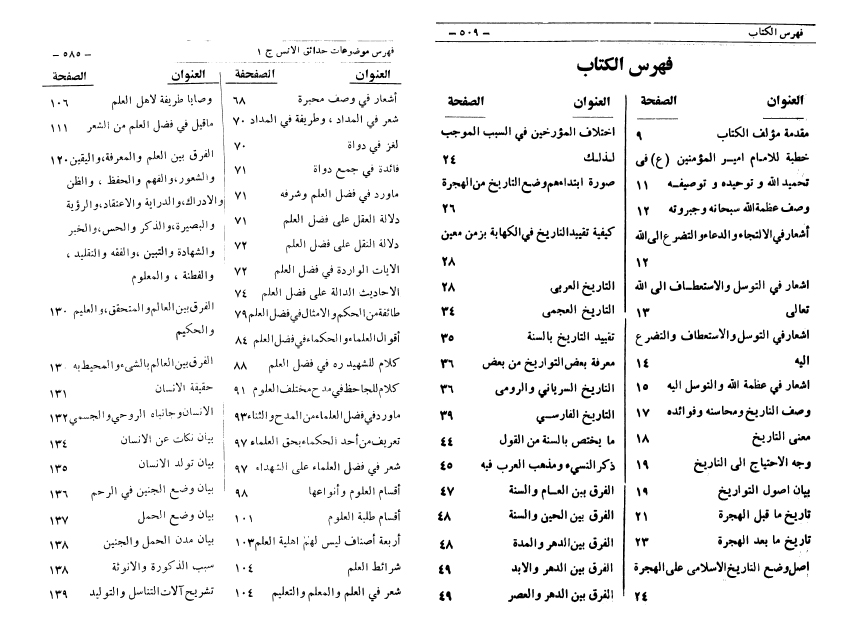 فهرس الكتاب — ٥٠٩ —
فهرس الكتاب
العنوان الصفحة
مقدمة مؤلف الكتاب ٩
خطبة للامام امير المؤمنين (ع) فى
تحميد الله و توحيده و توصيفه ١١
وصف عظمة الله سبحانه وجبروته ١٢
أشعار في الالتجاء والدعاء والتضرع الى الله
١٢
اشعار في التوسل والاستعطاف الى الله
تعالى ١٣
اشعار في التوسل والاستعطاف والتضرع
اليه ١٤
اشعار في عظمة الله والتوسل اليه ١٥
وصف التاريخ ومحاسنه وفوائده ١٧
معنى التاريخ ١٨
وجه الاحتياج الى التاريخ ١٩
بيان اصول التواريخ ١٩
تاريخ ما قبل الهجرة ٢١
تاريخ ما بعد الهجرة ٢٣
اصل وضع التاريخ الاسلامى على الهجرة
٢٤
العنوان الصفحة
اختلاف المؤرخين في السبب الموجب
لذلك ٢٤
صورة ابتداءهم وضع التاريخ من الهجرة
٢٦
كيفية تقييد التاريخ في الكهابة بزمن معين
٢٨
التاريخ العربى ٢٨
التاريخ العجمى ٣٤
تقييد التاريخ بالسنة ٣٥
معرفة بعض التواريخ من بعض ٣٦
التاريخ السرياني والرومى ٣٦
التاريخ الفارسي ٣٩
ما يختص بالسنة من القول ٤٤
ذكر النسيء ومذهب العرب فيه ٤٥
الفرق بين العام والسنة ٤٧
الفرق بين الحين والسنة ٤٨
الفرق بين الدهر والمدة ٤٨
الفرق بين الدهر والابد ٤٩
الفرق بين الدهر والعصر ٤٩
فهرس موضوعات حدائق الانس ج ١ — ٥٨٥ —
العنوان الصفحفة
أشعار في وصف محبرة ٦٨
شعر في المداد ، وطريفة في المداد ٧٠
لغز في دواة ٧٠
فائدة في جمع دواة ٧١
ماورد في فضل العلم وشرفه ٧١
دلالة العقل على فضل العلم ٧١
دلالة النقل على فضل العلم ٧٢
الايات الواردة في فضل العلم ٧٢
الاحاديث الدالة على فضل العلم ٧٤
طائفة من الحكم والامثال في فضل العلم ٧٩
أقوال العلماء والحكماء في فضل العلم ٨٤
كلام للشهيد ره في فضل العلم ٨٨
كلام للجاحظ في مدح مختلف العلوم ٩١
ماورد في فضل العلماء من المدح والثناء ٩٣
تعريف من أحد الحكماء بحق العلماء ٩٧
شعر في فضل العلماء على الشهداء ٩٧
أقسام العلوم وأنواعها ٩٨
أقسام طلبة العلوم ١٠١
أربعة أصناف ليس لهم اهلية العلم ١٠٣
شرائط العلم ١٠٤
شعر في العلم والمعلم والتعليم ١٠٤
العنوان الصفحة
وصايا طريفة لاهل العلم ١٠٦
ماقيل في فضل العلم من الشعر ١١١
الفرق بين العلم والمعرفة، واليقين ١٢٠
والشعور، والفهم والحفظ ، والظن
والادراك، والدراية والاعتقاد، والرؤية
والبصيرة، والذكر والحس، والخبر
والشهادة والتبين ، والفقه والتقليد ،
والفطنة ، والمعلوم
الفرق بين العالم والمتحقق، والعليم ١٣٠
والحكيم
الفرق بين العالم بالشىء والمحيط به ١٣٠
حقيقة الانسان ١٣١
الانسان وجانباه الروحي والجسمي ١٣٢
بيان نكات عن الانسان ١٣٤
بيان تولد الانسان ١٣٥
بيان وضع الجنين في الرحم ١٣٦
بيان وضع الحمل ١٣٧
بيان مدن الحمل والجنين ١٣٨
سبب الذكورة والانوثة ١٣٨
تشريح آلات التناسل والتوليد ١٣٩